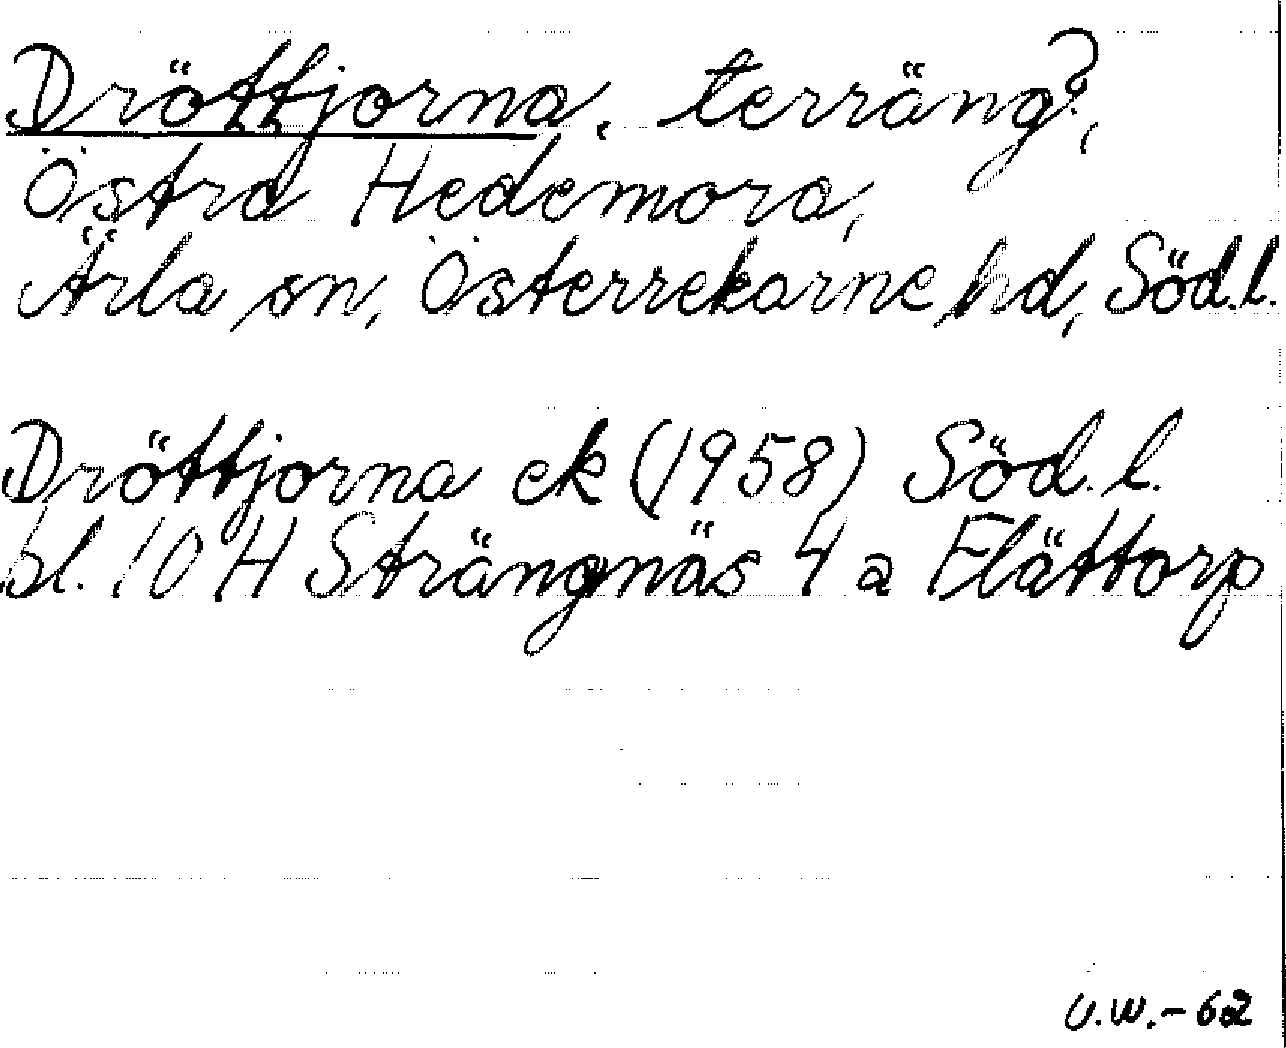 Dröttjorna, terräng?,
Östra Hedemora,
Ärla sn, Österrekarne hd, Söd.l.
Dröttjorna ek (1958) Söd.l.
bl. 10 H Strängnäs 4 a Flättorp
U.W.-62